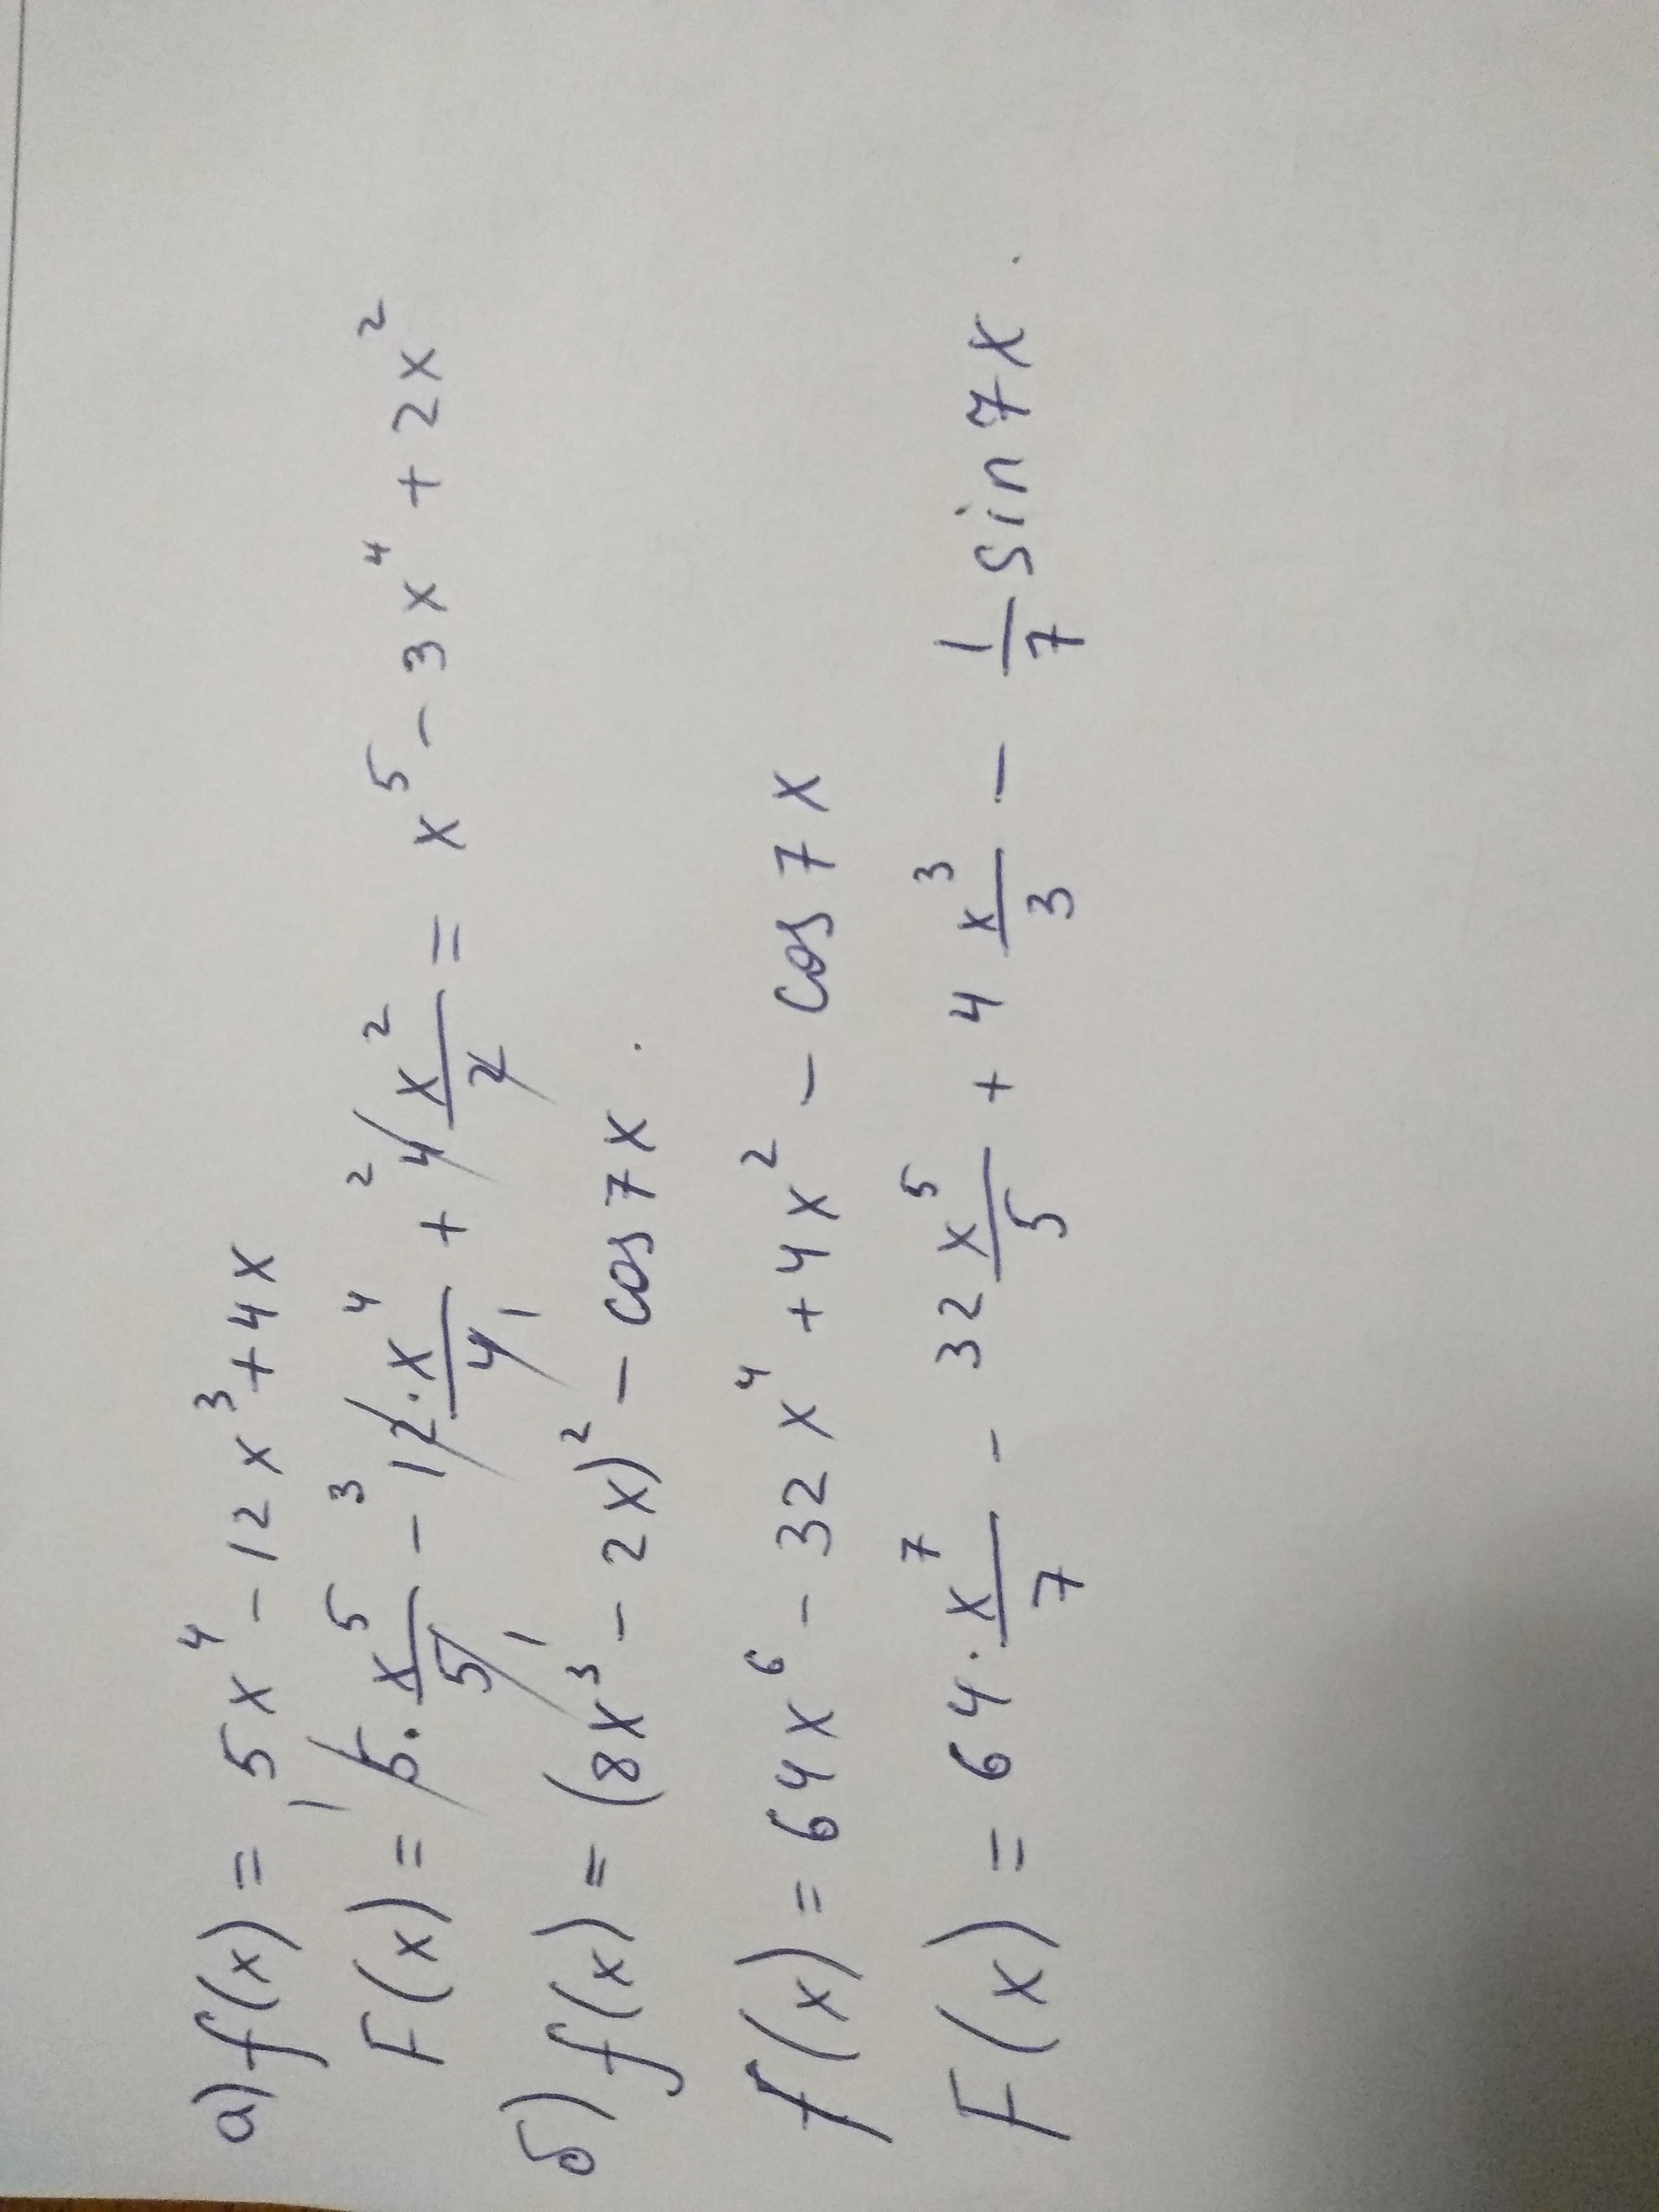 а) f(x) = 5x⁴ - 12x³ + 4x
F(x) = ¹5 · x⁵/5₁ - ³12 · x⁴/4₁ + ²4 x²/2 = x⁵ - 3x⁴ + 2x²
б) f(x) = (8x³ - 2x)² - cos 7x.
f(x) = 64x⁶ - 32x⁴ + 4x² - cos 7x
F(x) = 64 · x⁷/7 - 32 x⁵/5 + 4 x³/3 - 1/7 sin 7x.